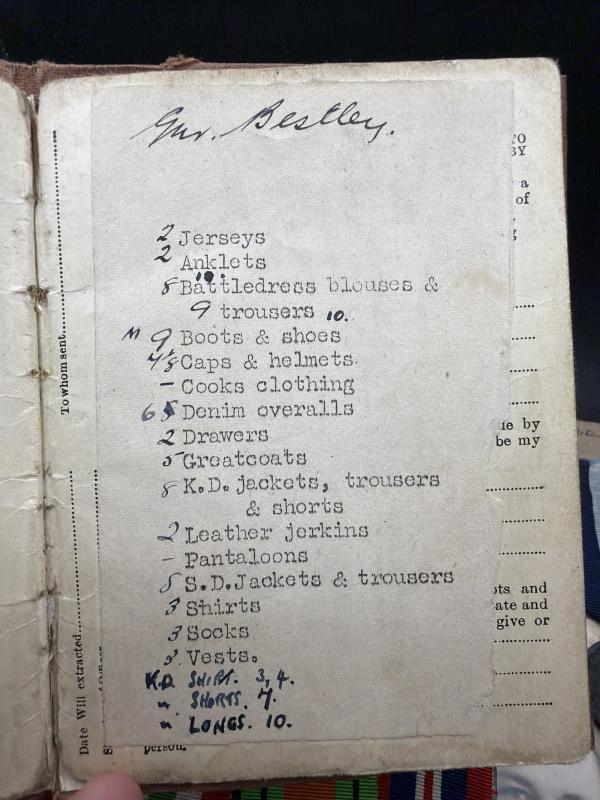 Gnr. Bestley.
2 Jerseys
2 Anklets
8 Battledress blouses &
9 trousers 10.
M 9 Boots & shoes
Caps & helmets.
– Cooks clothing
6 Denim overalls
2 Drawers
5 Greatcoats
8 K.D. jackets, trousers
& shorts
2 Leather jerkins
– Pantaloons
8 S.D.Jackets & trousers
3 Shirts
3 Socks
Vests.
K.D. SHIRT. 3, 4.
" SHORTS. 7.
" LONGS. 10.
To whom sent
Date Will extracted
person.
TO
BY
a
of
ie by
be my
ots and
ate and
give or